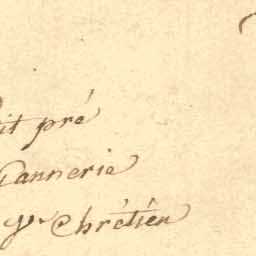 it pré
Tannerie
Chrétien